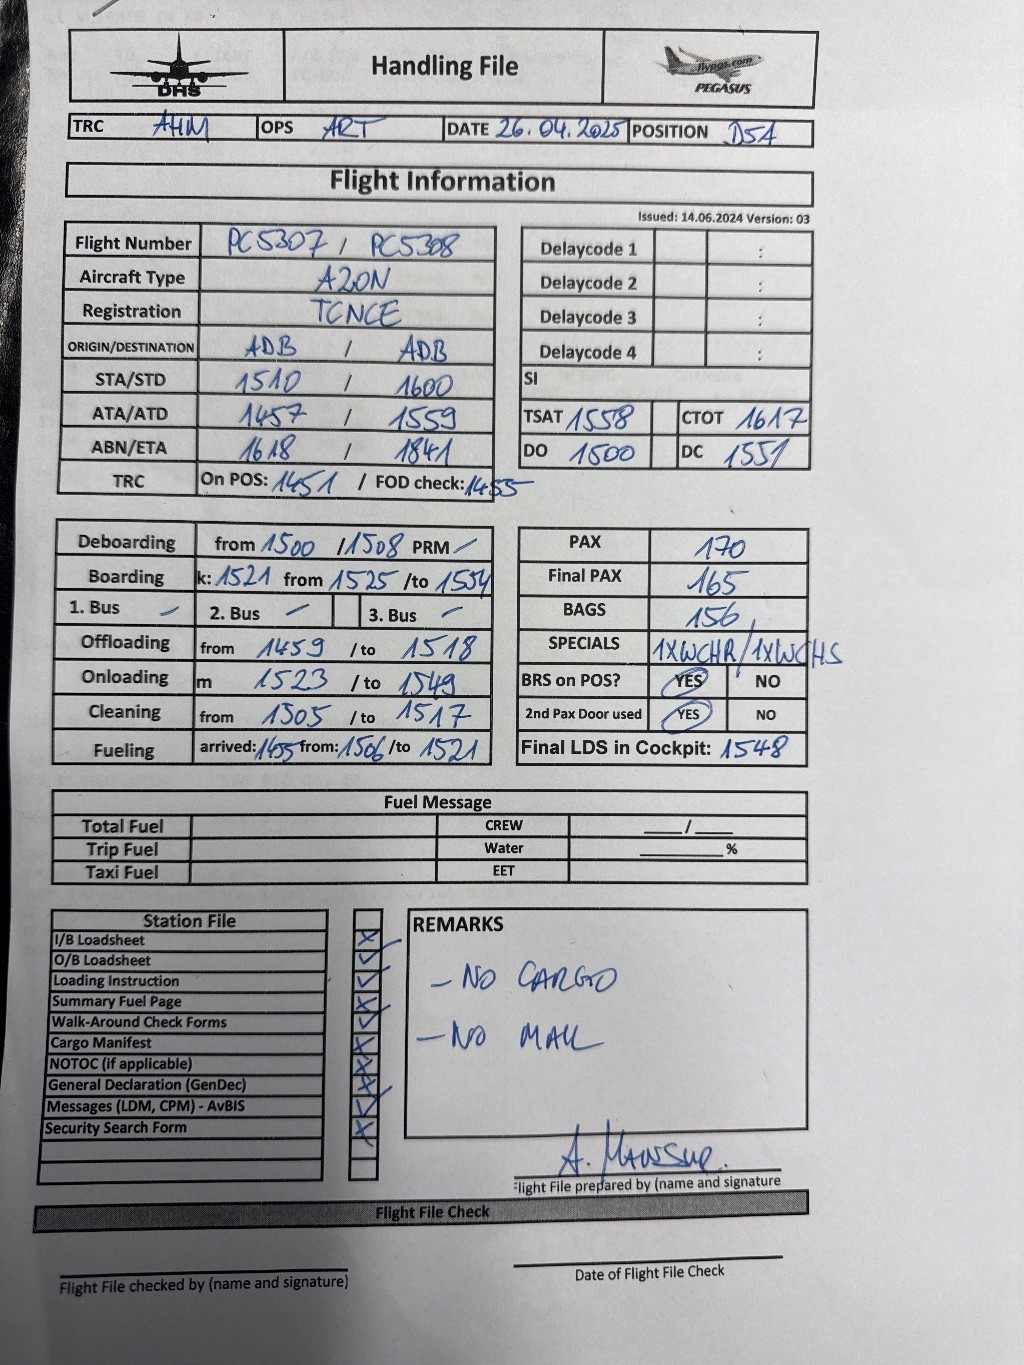 DHS
Handling File
flypgs.com
PEGASUS
TRC AHM OPS ART DATE 26.04.2025 POSITION D5A
Flight Information
Issued: 14.06.2024 Version: 03
Flight Number PC5307 / PC5308
Aircraft Type A20N
Registration TCNCE
ORIGIN/DESTINATION ADB / ADB
STA/STD 1510 / 1600
ATA/ATD 1457 / 1559
ABN/ETA 1618 / 1841
TRC On POS: 1451 / FOD check: 1455
Delaycode 1 :
Delaycode 2 :
Delaycode 3 :
Delaycode 4 :
SI
TSAT 1558 CTOT 1617
DO 1500 DC 1551
Deboarding from 1500 / 1508 PRM –
Boarding k: 1521 from 1525 /to 1534
1. Bus – 2. Bus – 3. Bus –
Offloading from 1459 /to 1518
Onloading m 1523 /to 1549
Cleaning from 1505 /to 1517
Fueling arrived: 1455 from: 1506 /to 1521
PAX 170
Final PAX 165
BAGS 156
SPECIALS 1XWCHR/1XWCHS
BRS on POS? YES NO
2nd Pax Door used YES NO
Final LDS in Cockpit: 1548
Fuel Message
Total Fuel CREW ___/___
Trip Fuel Water ______%
Taxi Fuel EET
Station File
I/B Loadsheet X
O/B Loadsheet ✓
Loading Instruction ✓
Summary Fuel Page X
Walk-Around Check Forms ✓
Cargo Manifest X
NOTOC (if applicable) X
General Declaration (GenDec) X
Messages (LDM, CPM) - AvBIS ✓
Security Search Form X
REMARKS
– NO CARGO
– NO MAIL
A. Mansur.
Flight File prepared by (name and signature
Flight File Check
Flight File checked by (name and signature)
Date of Flight File Check